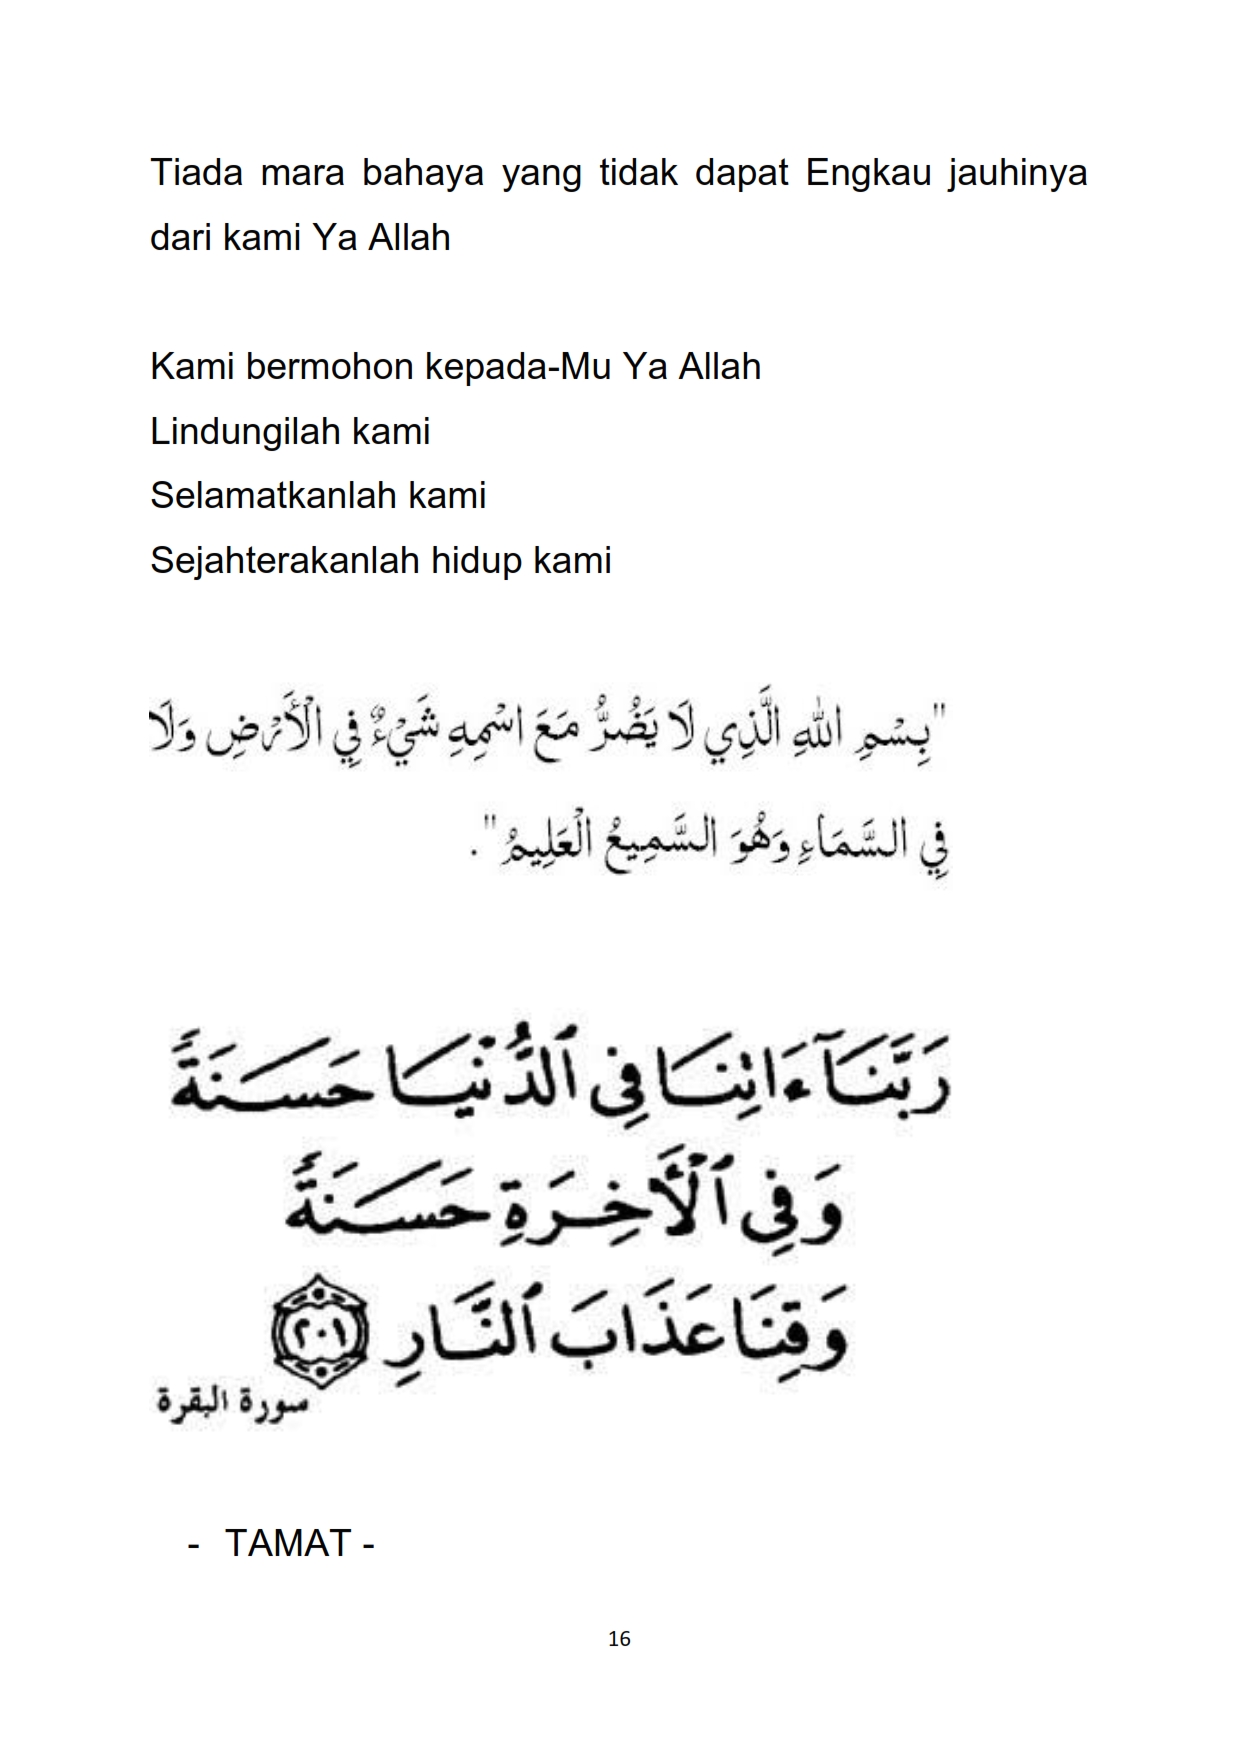 Tiada mara bahaya yang tidak dapat Engkau jauhinya
dari kami Ya Allah
Kami bermohon kepada-Mu Ya Allah
Lindungilah kami
Selamatkanlah kami
Sejahterakanlah hidup kami
"بِسْمِ اللهِ الَّذِي لَا يَضُرُّ مَعَ اسْمِهِ شَيْءٌ فِي الْأَرْضِ وَلَا
فِي السَّمَاءِ وَهُوَ السَّمِيعُ الْعَلِيمُ".
رَبَّنَآ ءَاتِنَا فِى ٱلدُّنْيَا حَسَنَةً
وَفِى ٱلْأَخِرَةِ حَسَنَةً
وَقِنَا عَذَابَ ٱلنَّارِ ٢٠١
سورة البقرة
- TAMAT -
16